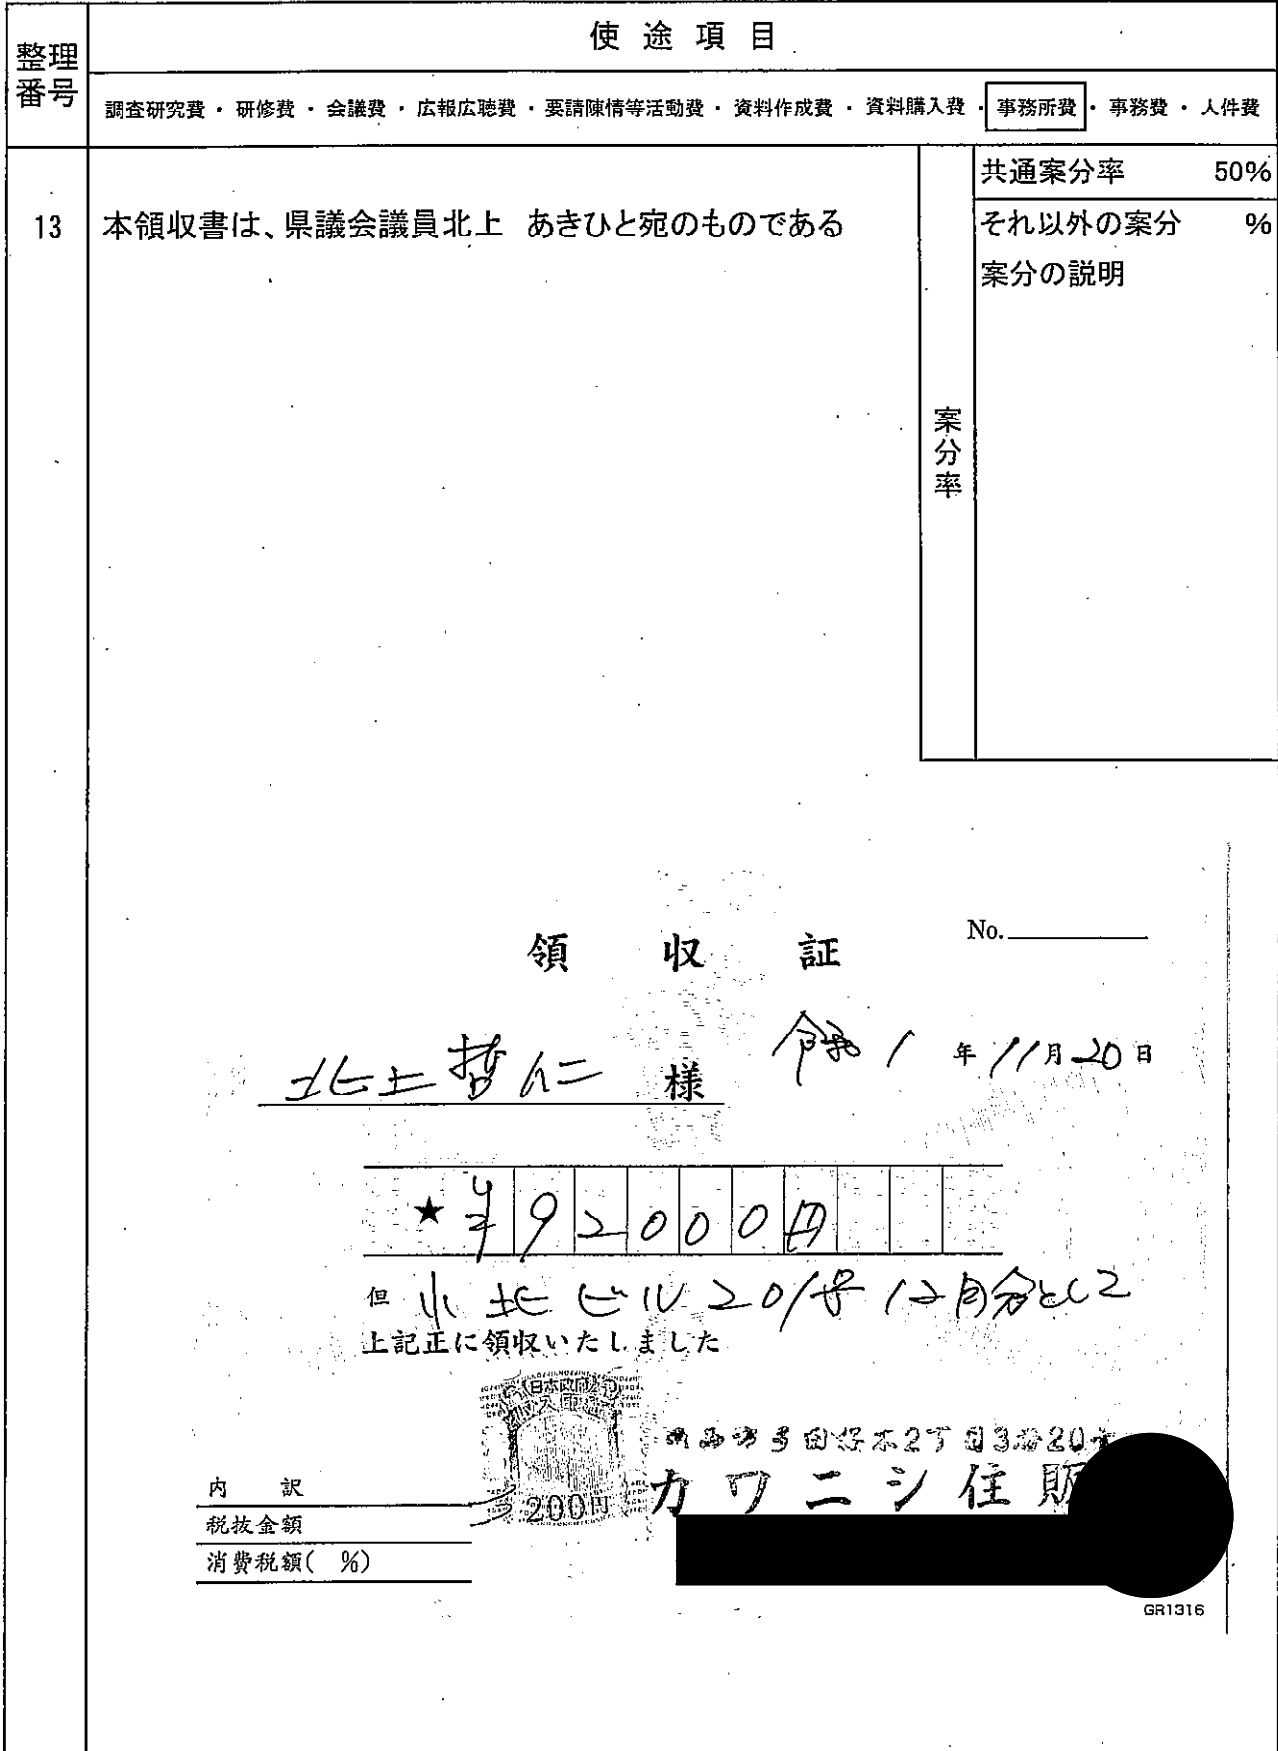 整理番号
使途項目
調査研究費・研修費・会議費・広報広聴費・要請陳情等活動費・資料作成費・資料購入費・事務所費・事務費・人件費
13
本領収書は、県議会議員北上 あきひと宛のものである
案分率
共通案分率 50%
それ以外の案分 %
案分の説明
領収証
No.
北上哲仁 様
令和1年11月20日
★ ¥92000円
但 小北ビル201号12月分として
上記正に領収いたしました
200円
2丁目3番20号
カワニシ住販
内訳
税抜金額
消費税額( %)
GR1316